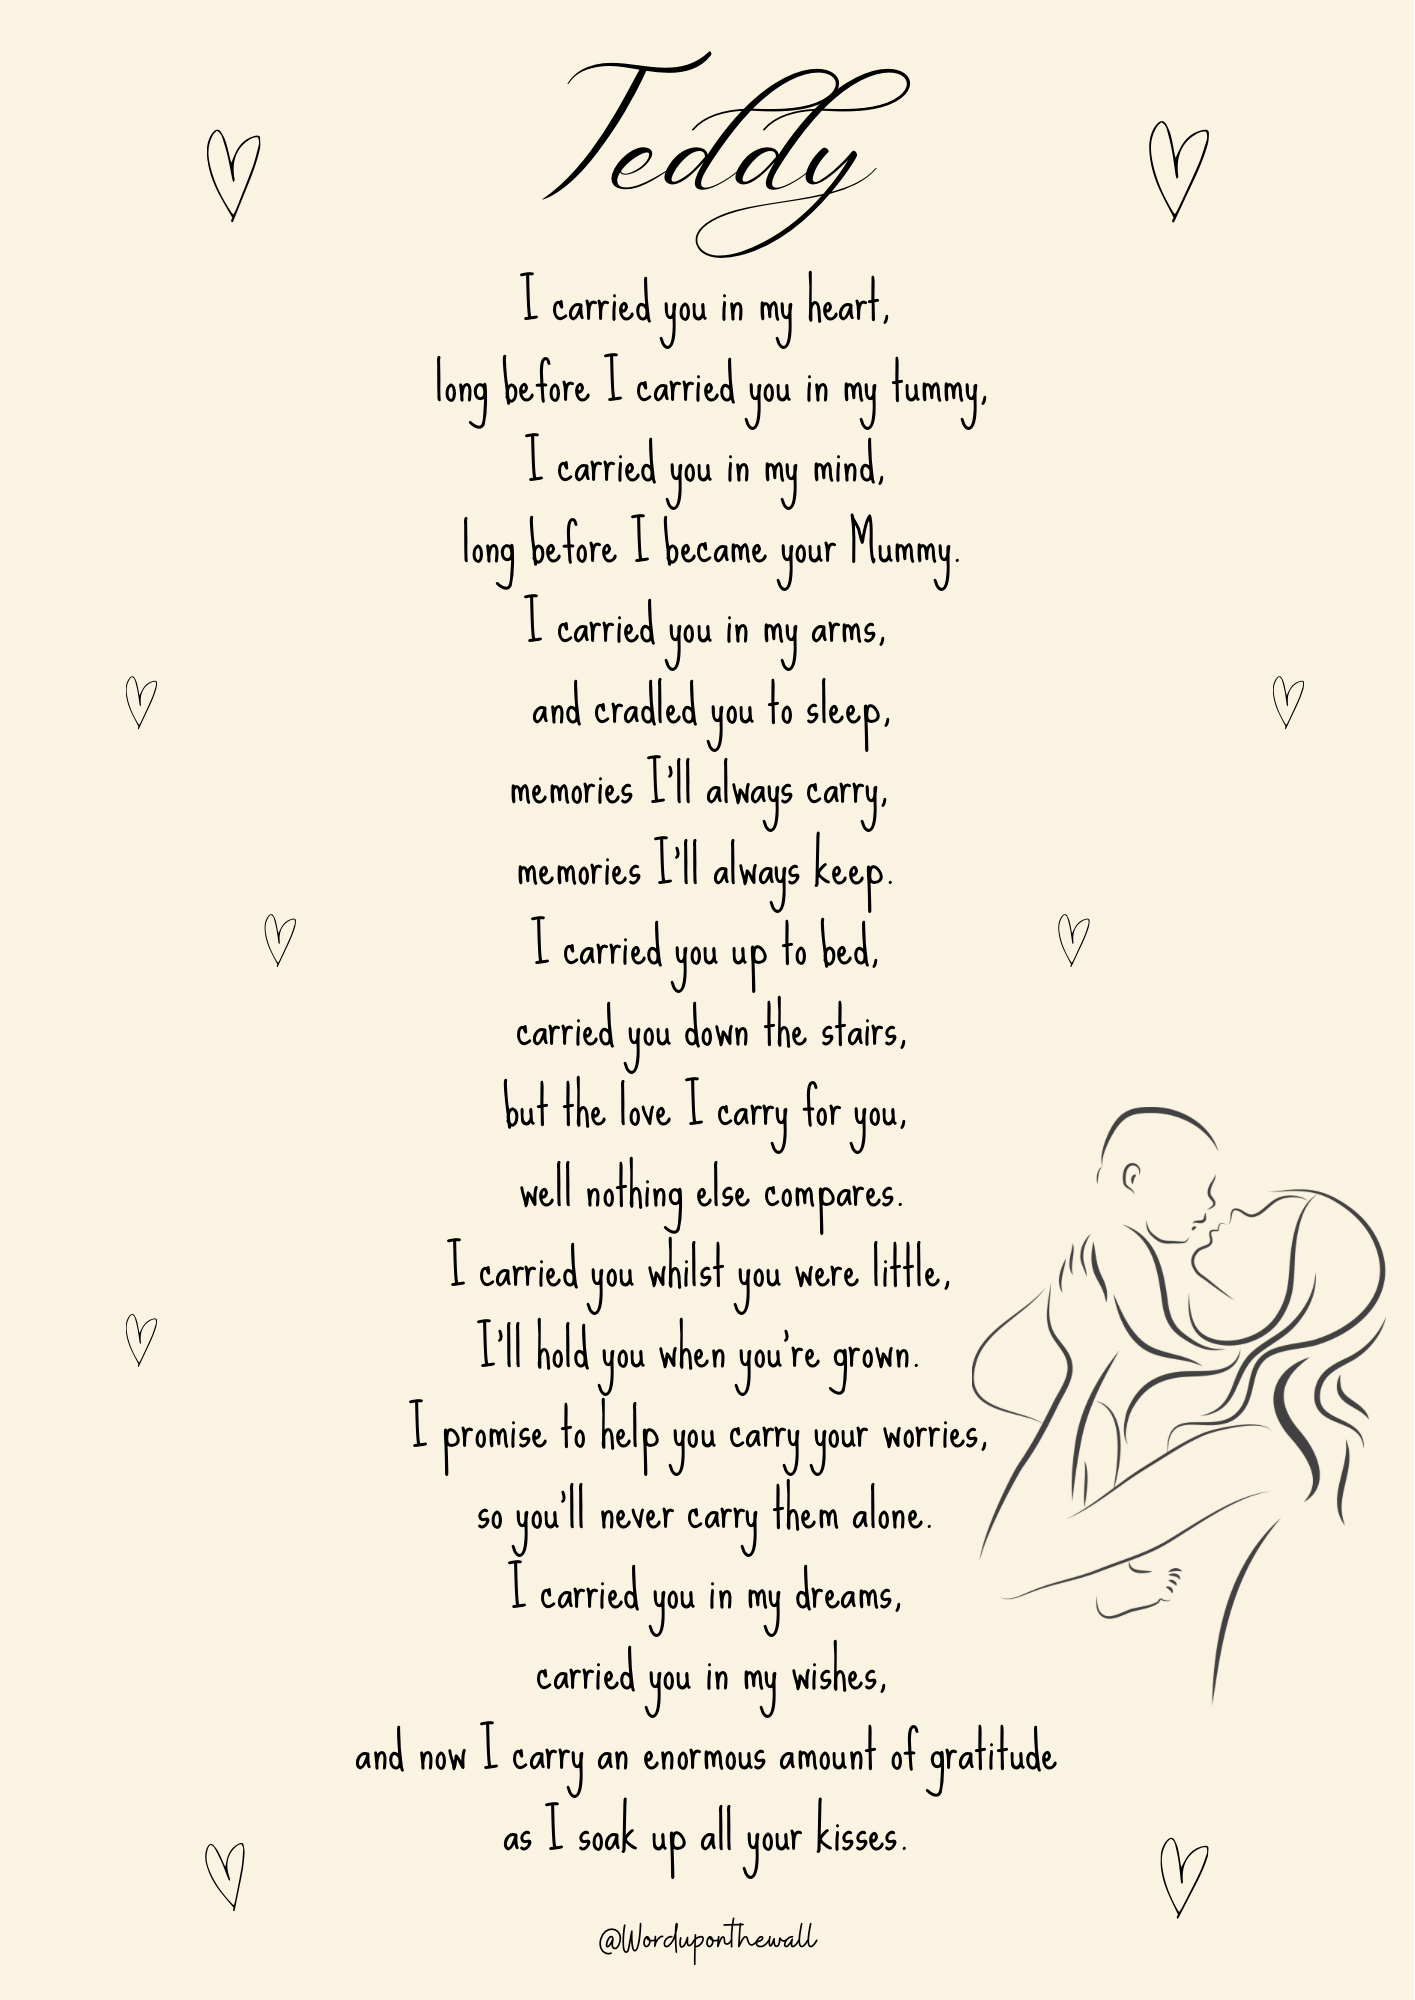 Teddy
I carried you in my heart,
long before I carried you in my tummy,
I carried you in my mind,
long before I became your Mummy.
I carried you in my arms,
and cradled you to sleep,
memories I'll always carry,
memories I'll always keep.
I carried you up to bed,
carried you down the stairs,
but the love I carry for you,
well nothing else compares.
I carried you whilst you were little,
I'll hold you when you're grown.
I promise to help you carry your worries,
so you'll never carry them alone.
I carried you in my dreams,
carried you in my wishes,
and now I carry an enormous amount of gratitude
as I soak up all your kisses.
@Worduponthewall